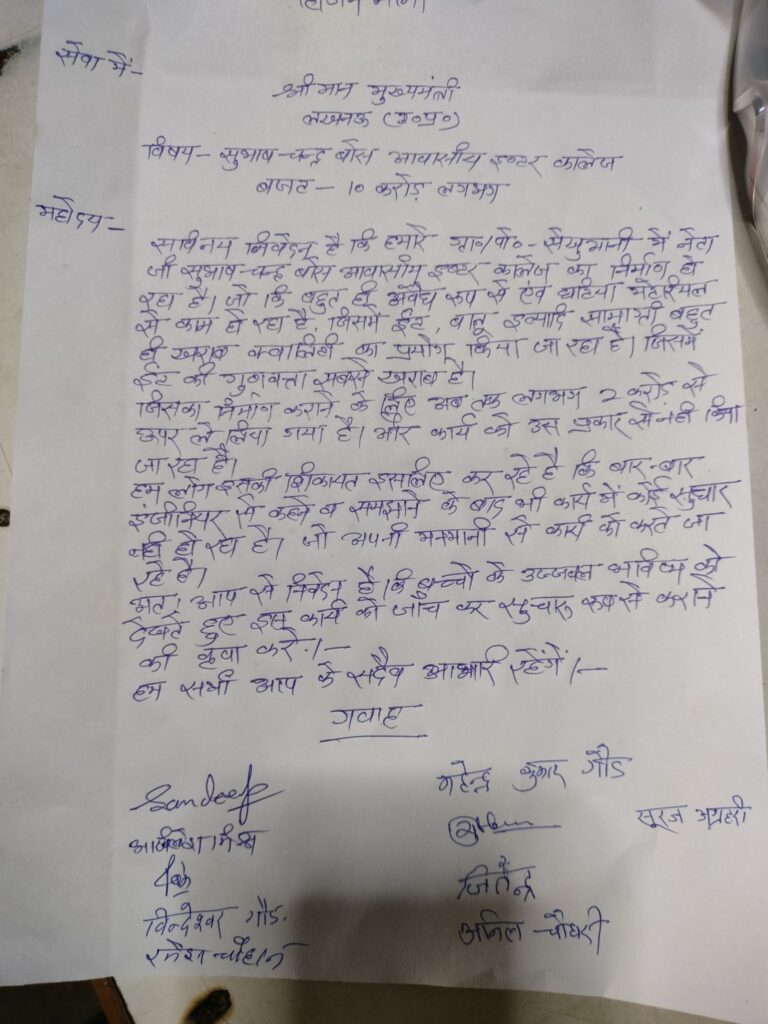 सेवा में-
श्रीमान मुख्यमंत्री
लखनऊ (उ०प्र०)
विषय- सुभाष-चन्द्र बोस आवासीय इण्टर कालेज
बजट - १० करोड़ लगभग
महोदय-
सविनय निवेदन है कि हमारे ग्रा०/पो०- सेखुआनी में नेता
जी सुभाष-चन्द्र बोस आवासीय इण्टर कालेज का निर्माण हो
रहा है। जो कि बहुत ही अवैध रूप से एंव घटिया मटेरियल
से काम हो रहा है, जिसमें ईट, बालू इत्यादि सामाग्री बहुत
ही खराब क्वालिटी का प्रयोग किया जा रहा है। जिसमें
ईट की गुणवत्ता सबसे खराब है।
जिसका निर्माण कराने के लिए अब तक लगभग 2 करोड़ से
ऊपर ले लिया गया है। और कार्य को उस प्रकार से नही किया
जा रहा है।
हम लोग इसकी शिकायत इसलिए कर रहे है कि बार-बार
इंजीनियर से कहने व समझाने के बाद भी कार्य में कोई सुधार
नही हो रहा है। जो अपनी मनमानी से कार्य को करते जा
रहे है।
अतः आप से निवेदन है। कि बच्चो के उज्जवल भविष्य को
देखते हुए इस कार्य की जाँच कर सुचारू रूप से कराने
की कृपा करे।-
हम सभी आप के सदैव आभारी रहेंगें।-
गवाह
Sandeep
महेन्द्र कुमार गौड
अखिलेश मिश्र
सूरज अग्रहरी
जितेन्द्र
विन्देश्वर गौड.
अनिल चौधरी
रमेश चौहान